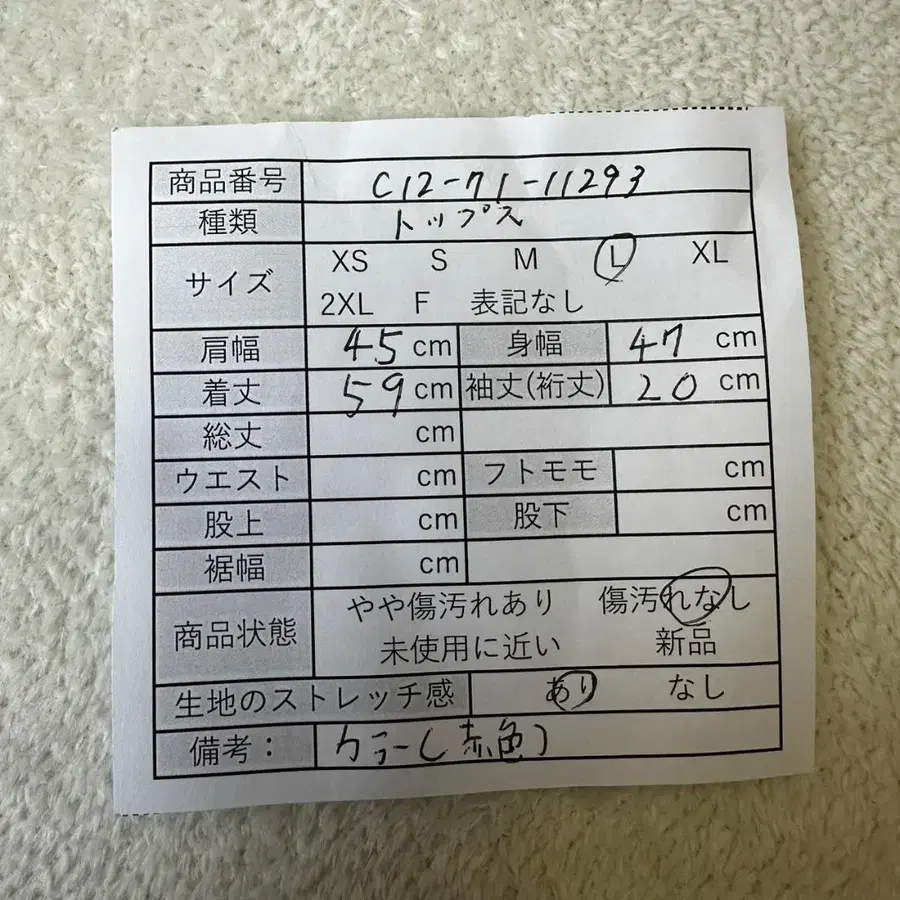 商品番号 C12-71-11293
種類 トップス
サイズ XS S M L XL
2XL F 表記なし
肩幅 45 cm 身幅 47 cm
着丈 59 cm 袖丈(裄丈) 20 cm
総丈 cm
ウエスト cm フトモモ cm
股上 cm 股下 cm
裾幅 cm
商品状態 やや傷汚れあり 傷汚れなし
未使用に近い 新品
生地のストレッチ感 あり なし
備考： カラー(赤色)